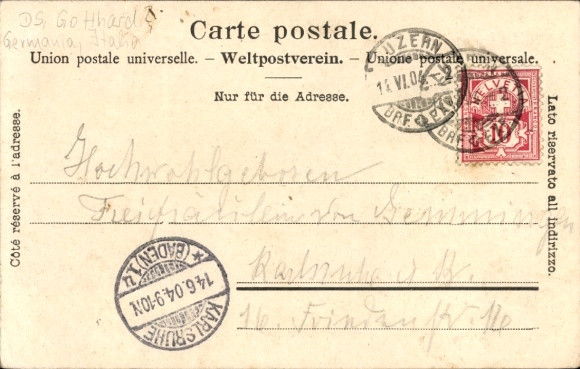 DS Gotthard
Germania, Italia
Carte postale.
Union postale universelle. – Weltpostverein. – Unione postale universale.
Nur für die Adresse.
Côté réservé à l'adresse.
Lato riservato all indirizzo.
LUZERN
14.VI.04
BRF.
HELVETIA
10
Hochwohlgeboren
Freifräulein von Gemmingen
Karlsruhe i. B.
16. Frieden
KARLSRUHE
14.6.04.9-10N.
* (BADEN) 1.